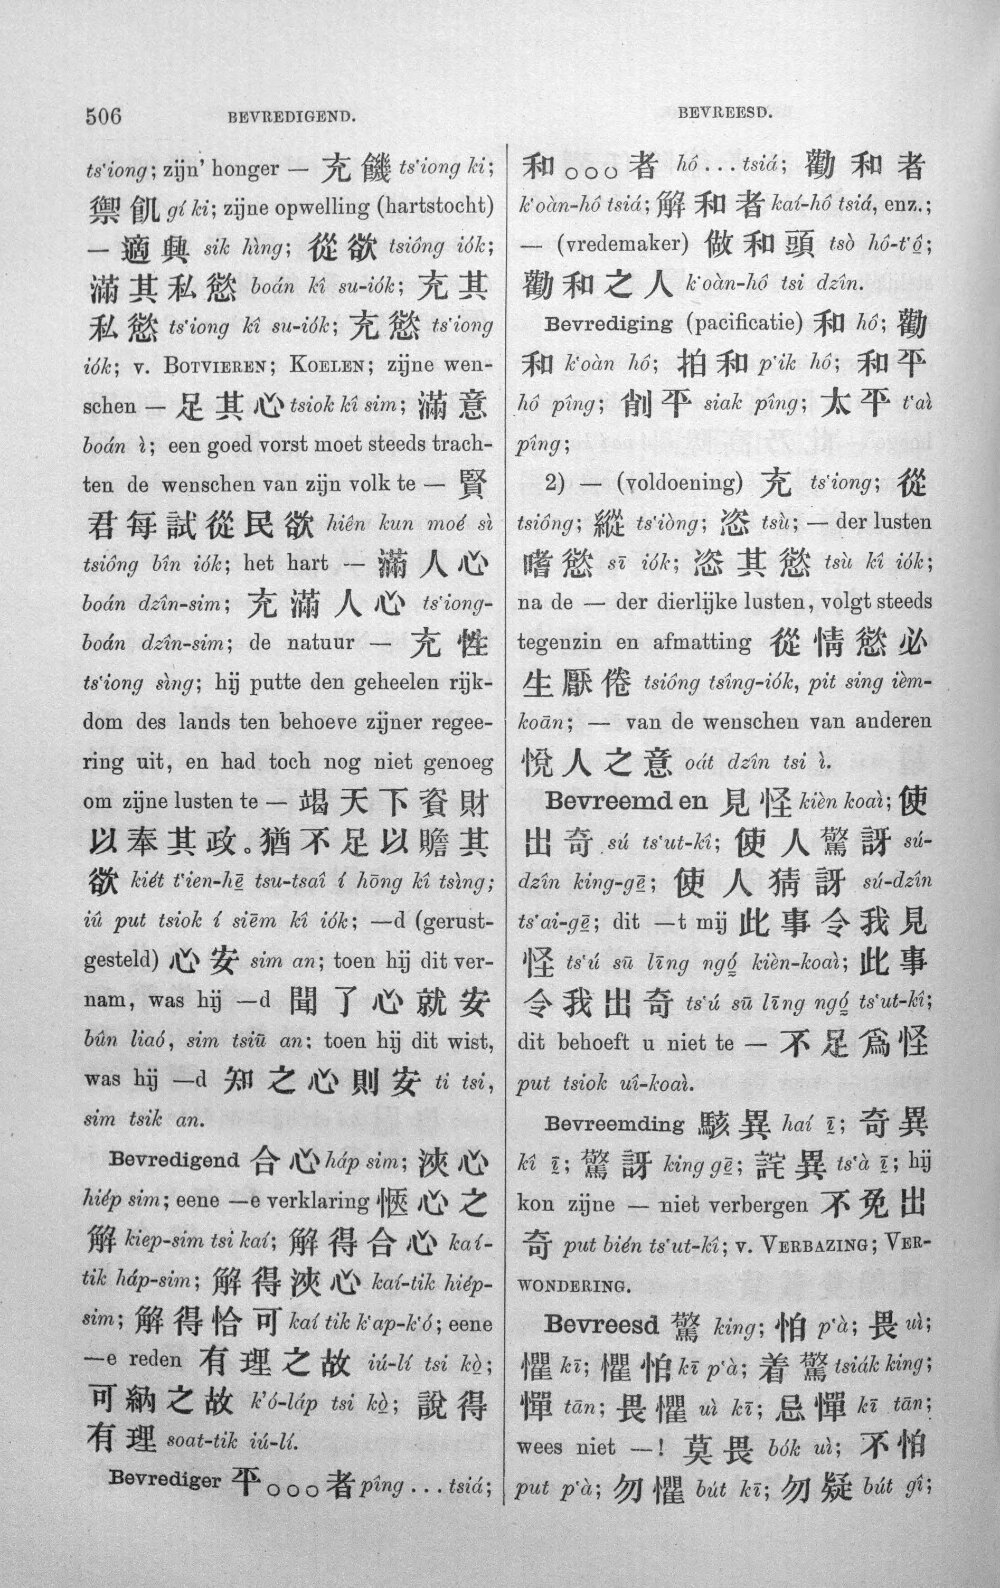 506
BEVREDIGEND.
BEVREESD.
ts'iong; zijn' honger — 充饑 ts'iong ki;
禦飢 gí ki; zijne opwelling (hartstocht)
— 適興 sik hìng; 從欲 tsiông iók;
滿其私慾 boán kî su-iók; 充其
私慾 ts'iong kî su-iók; 充慾 ts'iong
iók; v. BOTVIEREN; KOELEN; zijne wen-
schen — 足其心 tsiok kî sim; 滿意
boán ì; een goed vorst moet steeds trach-
ten de wenschen van zijn volk te — 賢
君每試從民欲 hiên kun moé sì
tsiông bîn iók; het hart — 滿人心
boán dzîn-sim; 充滿人心 ts'iong-
boán dzîn-sim; de natuur — 充性
ts'iong sìng; hij putte den geheelen rijk-
dom des lands ten behoeve zijner regee-
ring uit, en had toch nog niet genoeg
om zijne lusten te — 竭天下資財
以奉其政。猶不足以贍其
欲 kiét t'ien-hē tsu-tsaî í hōng kî tsìng;
iû put tsiok í siēm kî iók; —d (gerust-
gesteld) 心安 sim an; toen hij dit ver-
nam, was hij —d 聞了心就安
bûn liaó, sim tsiū an; toen hij dit wist,
was hij —d 知之心則安 ti tsi,
sim tsik an.
Bevredigend 合心 háp sim; 浹心
hiép sim; eene —e verklaring 愜心之
解 kiep-sim tsi kaí; 解得合心 kaí-
tik háp-sim; 解得浹心 kaí-tik hiép-
sim; 解得恰可 kaí tik k'ap-k'ó; eene
—e reden 有理之故 iú-lí tsi kò;
可納之故 k'ó-láp tsi kò; 說得
有理 soat-tik iú-lí.
Bevrediger 平○○○者 pîng ... tsiá;
和○○○者 hô ... tsiá; 勸和者
k'oàn-hô tsiá; 解和者 kaí-hô tsiá, enz.;
— (vredemaker) 做和頭 tsò hô-t'ô;
勸和之人 k'oàn-hô tsi dzîn.
Bevrediging (pacificatie) 和 hô; 勸
和 k'oàn hô; 拍和 p'ik hô; 和平
hô pîng; 削平 siak pîng; 太平 t'aì
pîng;
2) — (voldoening) 充 ts'iong; 從
tsiông; 縱 ts'iòng; 恣 tsù; — der lusten
嗜慾 sī iók; 恣其慾 tsù kî iók;
na de — der dierlijke lusten, volgt steeds
tegenzin en afmatting 從情慾必
生厭倦 tsiông tsîng-iók, pit sing ièm-
koān; — van de wenschen van anderen
悅人之意 oát dzîn tsi ì.
Bevreemden 見怪 kièn koaì; 使
出奇 sú ts'ut-kî; 使人驚訝 sú-
dzîn king-gē; 使人猜訝 sú-dzîn
ts'ai-gē; dit —t mij 此事令我見
怪 ts'ú sū līng ngó kièn-koaì; 此事
令我出奇 ts'ú sū līng ngó ts'ut-kî;
dit behoeft u niet te — 不足爲怪
put tsiok uî-koaì.
Bevreemding 駭異 haí ī; 奇異
kî ī; 驚訝 king gē; 詫異 ts'à ī; hij
kon zijne — niet verbergen 不免出
奇 put bién ts'ut-kî; v. VERBAZING; VER-
WONDERING.
Bevreesd 驚 king; 怕 p'à; 畏 uì;
懼 kī; 懼怕 kī p'à; 着驚 tsiák king;
憚 tān; 畏懼 uì kī; 忌憚 kī tān;
wees niet —! 莫畏 bók uì; 不怕
put p'à; 勿懼 bút kī; 勿疑 bút gî;